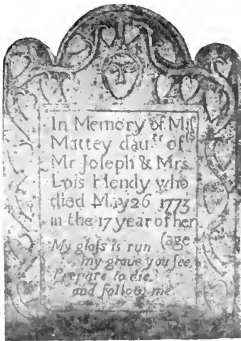 In Memory of Miſs
Mattey dauᵗʳ of
Mr Joſeph & Mrs
Lois Hendy who
died May 26 1773
in the 17 year of her
(age
My glaſs is run
my grave you ſee
Prepare to die
and follow me